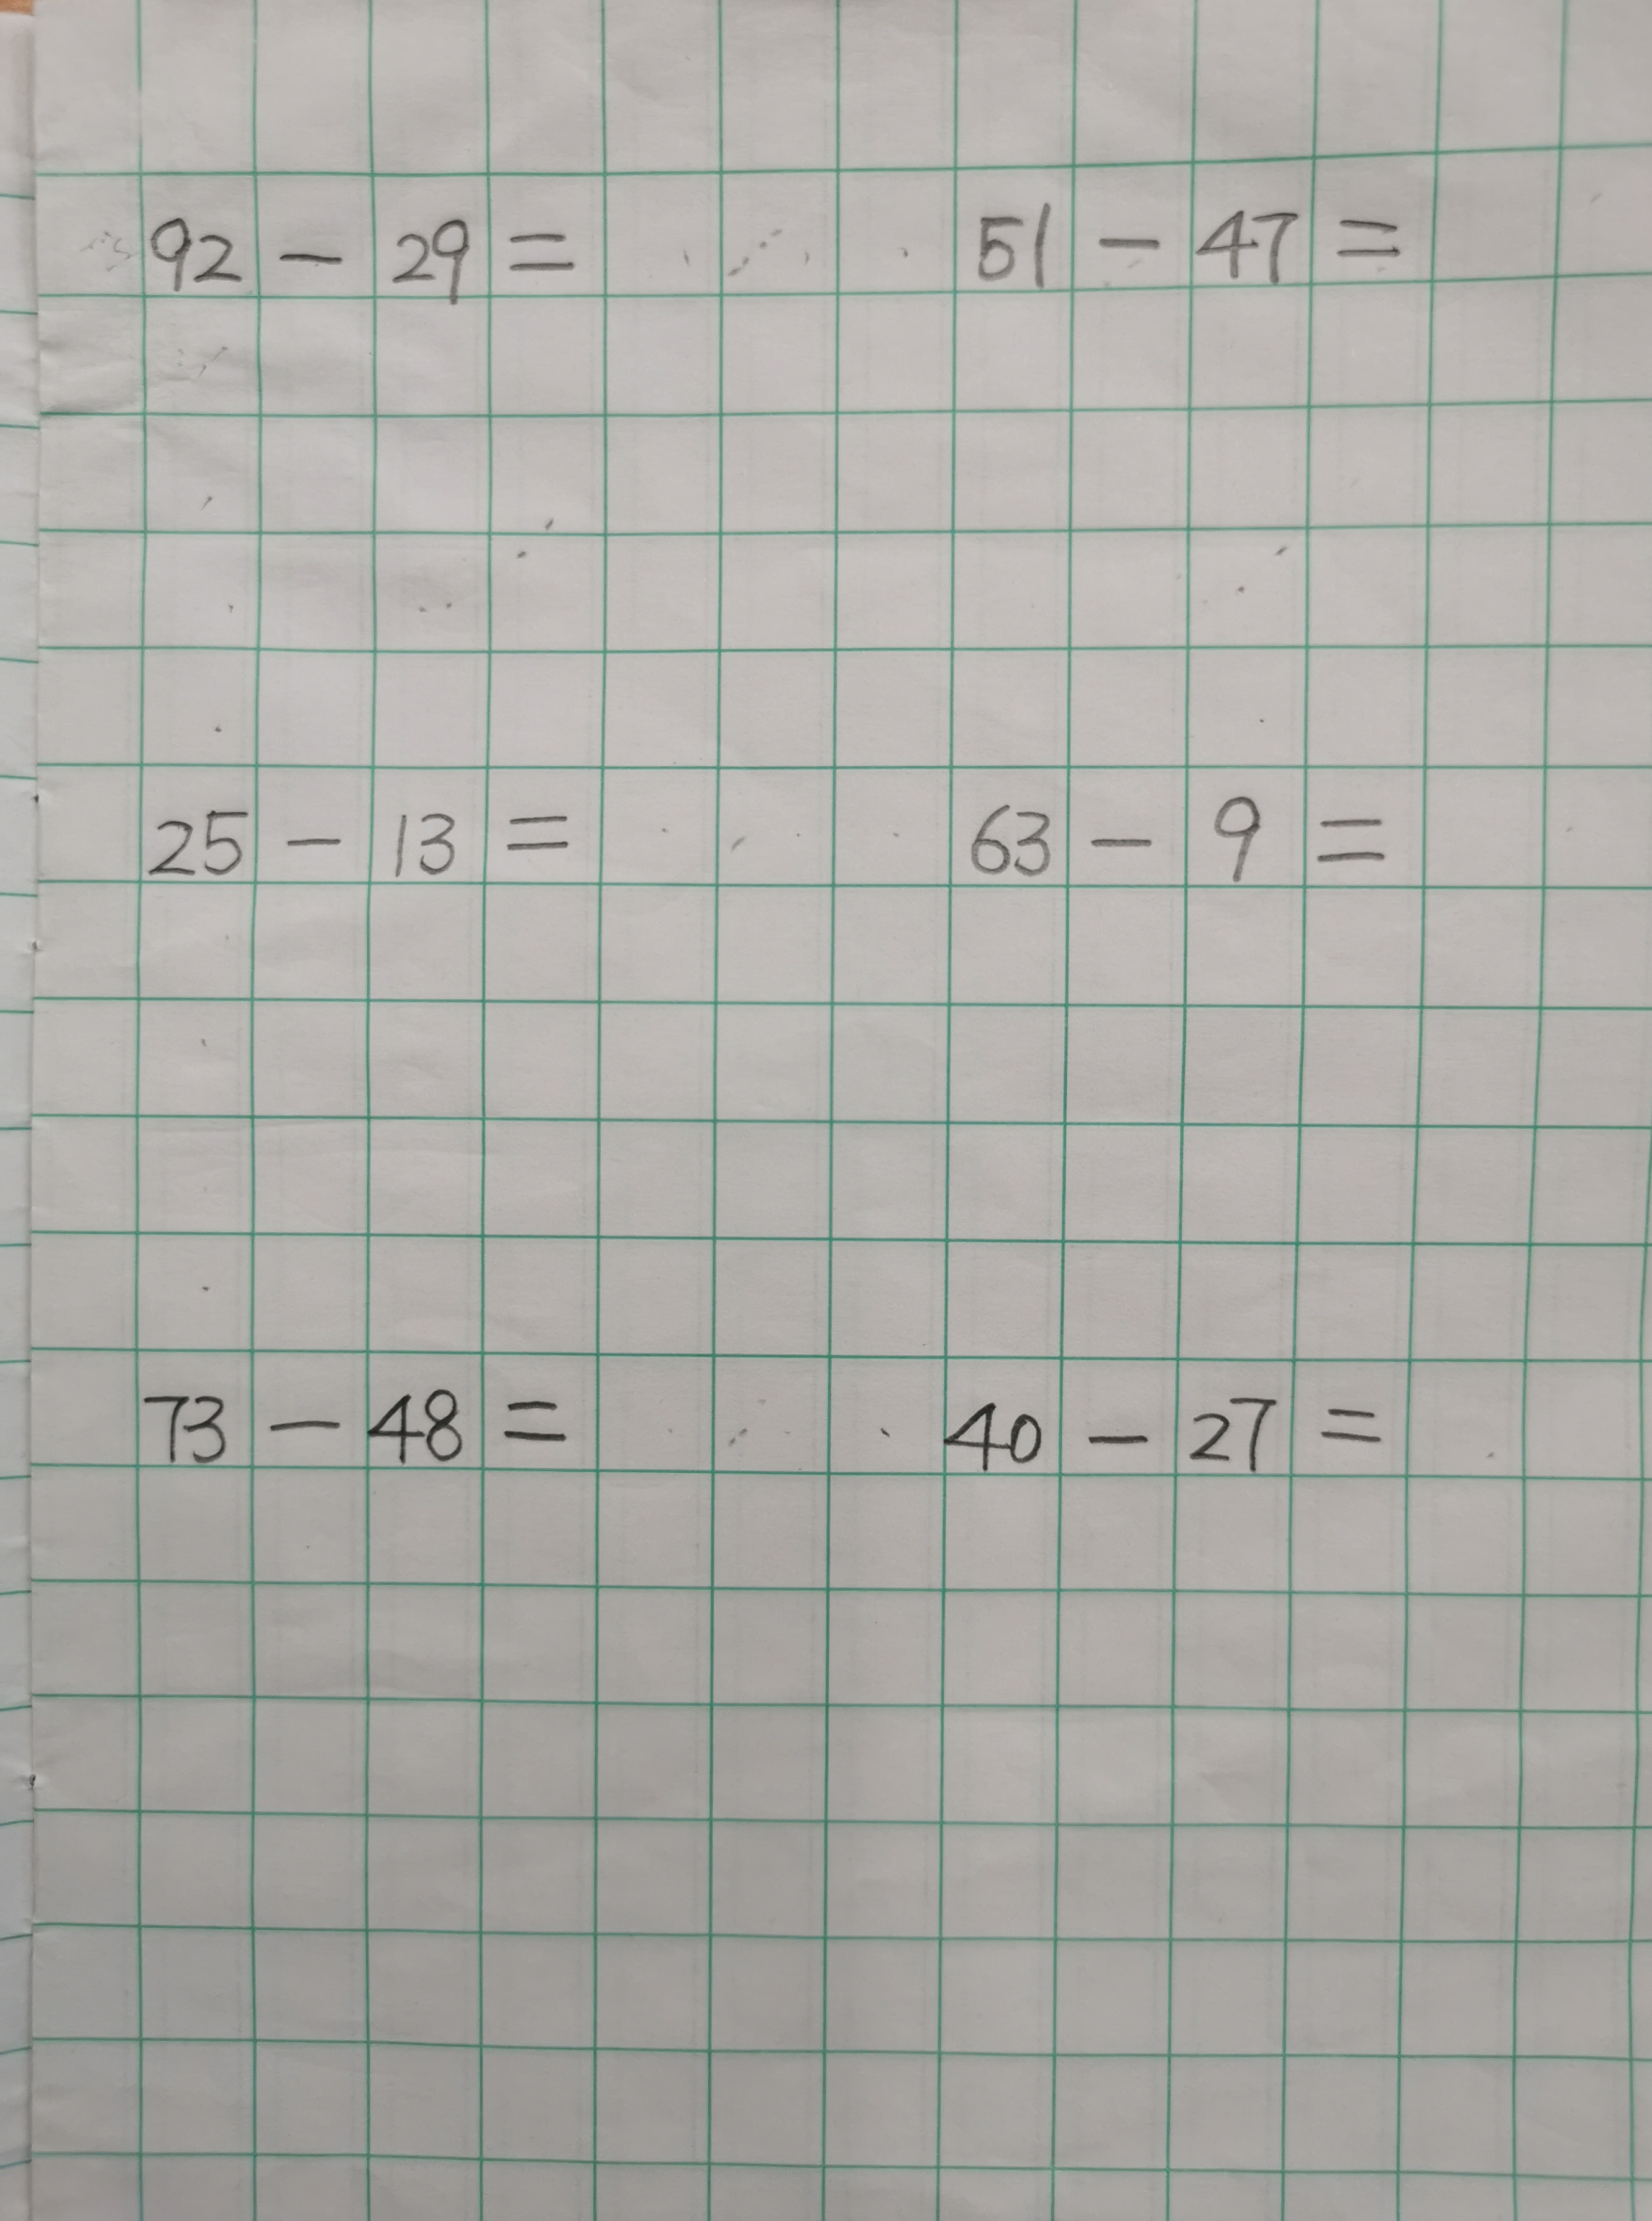 92 - 29 = 51 - 47 =
25 - 13 = 63 - 9 =
73 - 48 = 40 - 27 =